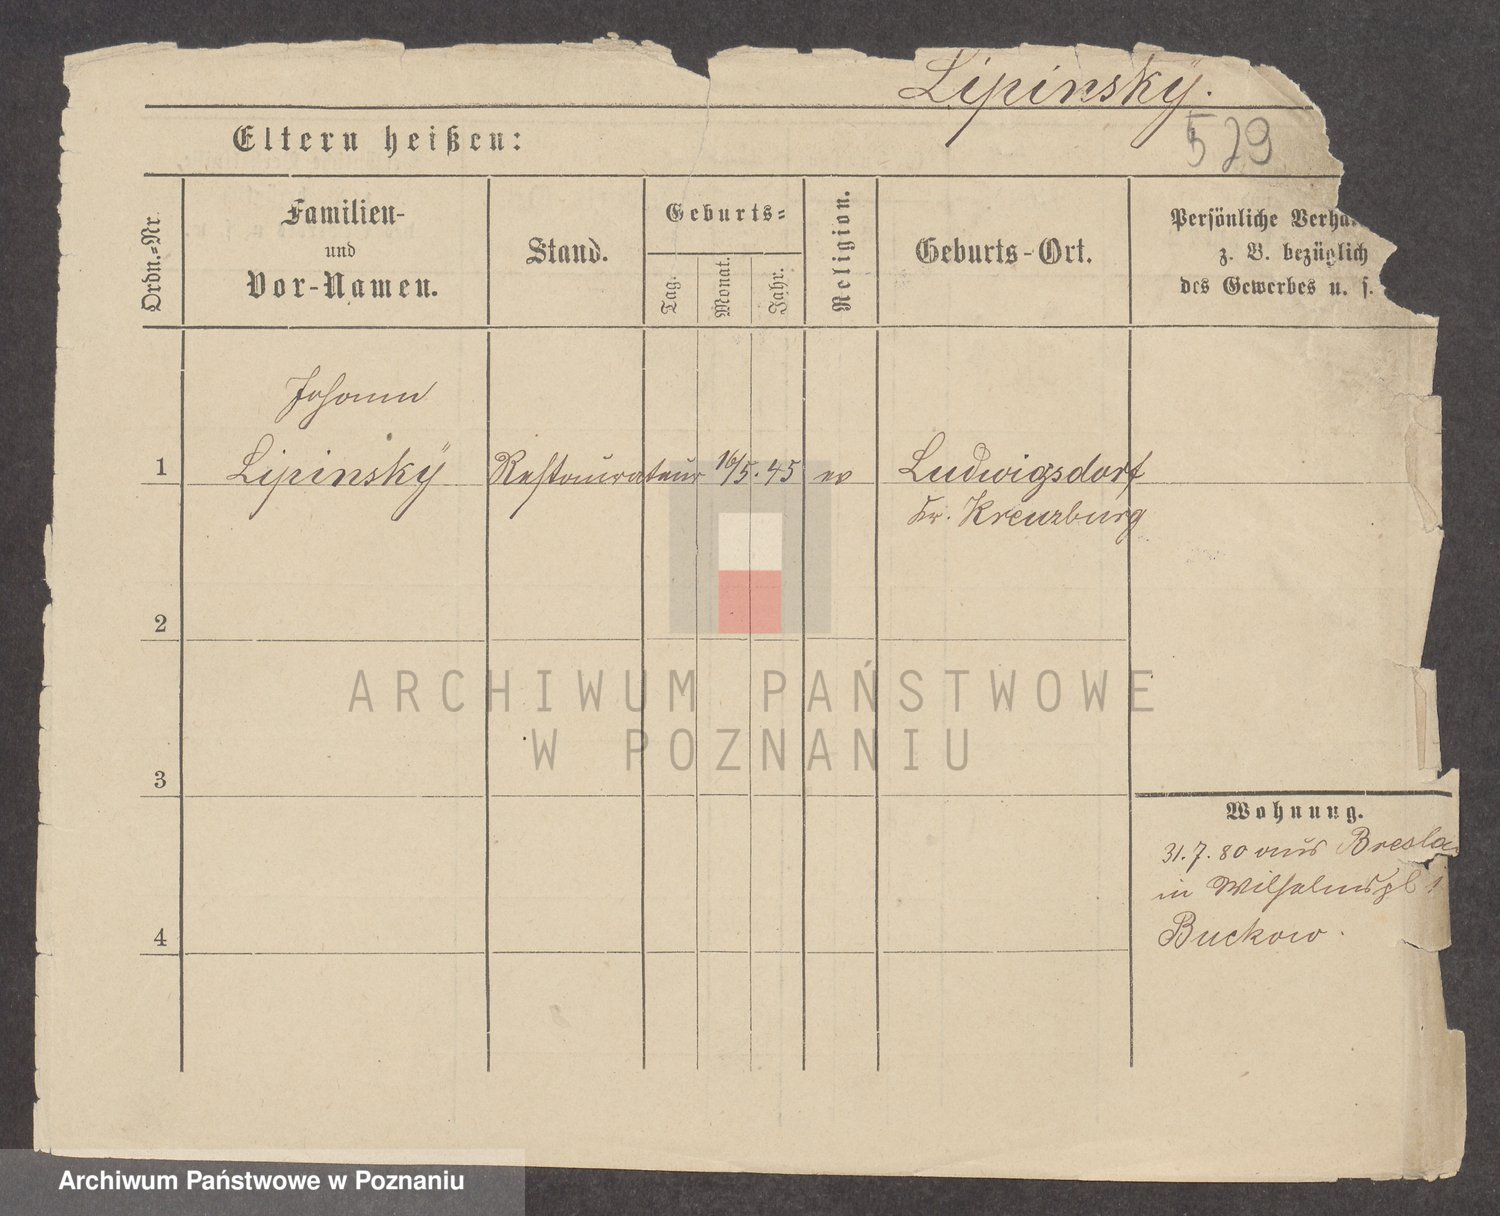 Lipinský.
529
Eltern heißen:
Ordn.-Nr.
Familien-
und
Vor-Namen.
Stand.
Geburts-
Tag.
Monat.
Jahr.
Religion.
Geburts-Ort.
Persönliche Verhä
z. B. bezüglich
des Gewerbes u. s.
Johann
1 Lipinský Restaurateur 16/5. 45 ev Ludwigsdorf
Kr. Kreuzburg
2
3
4
Wohnung.
31. 7. 80 aus Bresla
in Wilhelmspl 1
Buckow.
ARCHIWUM PAŃSTWOWE
W POZNANIU
Archiwum Państwowe w Poznaniu